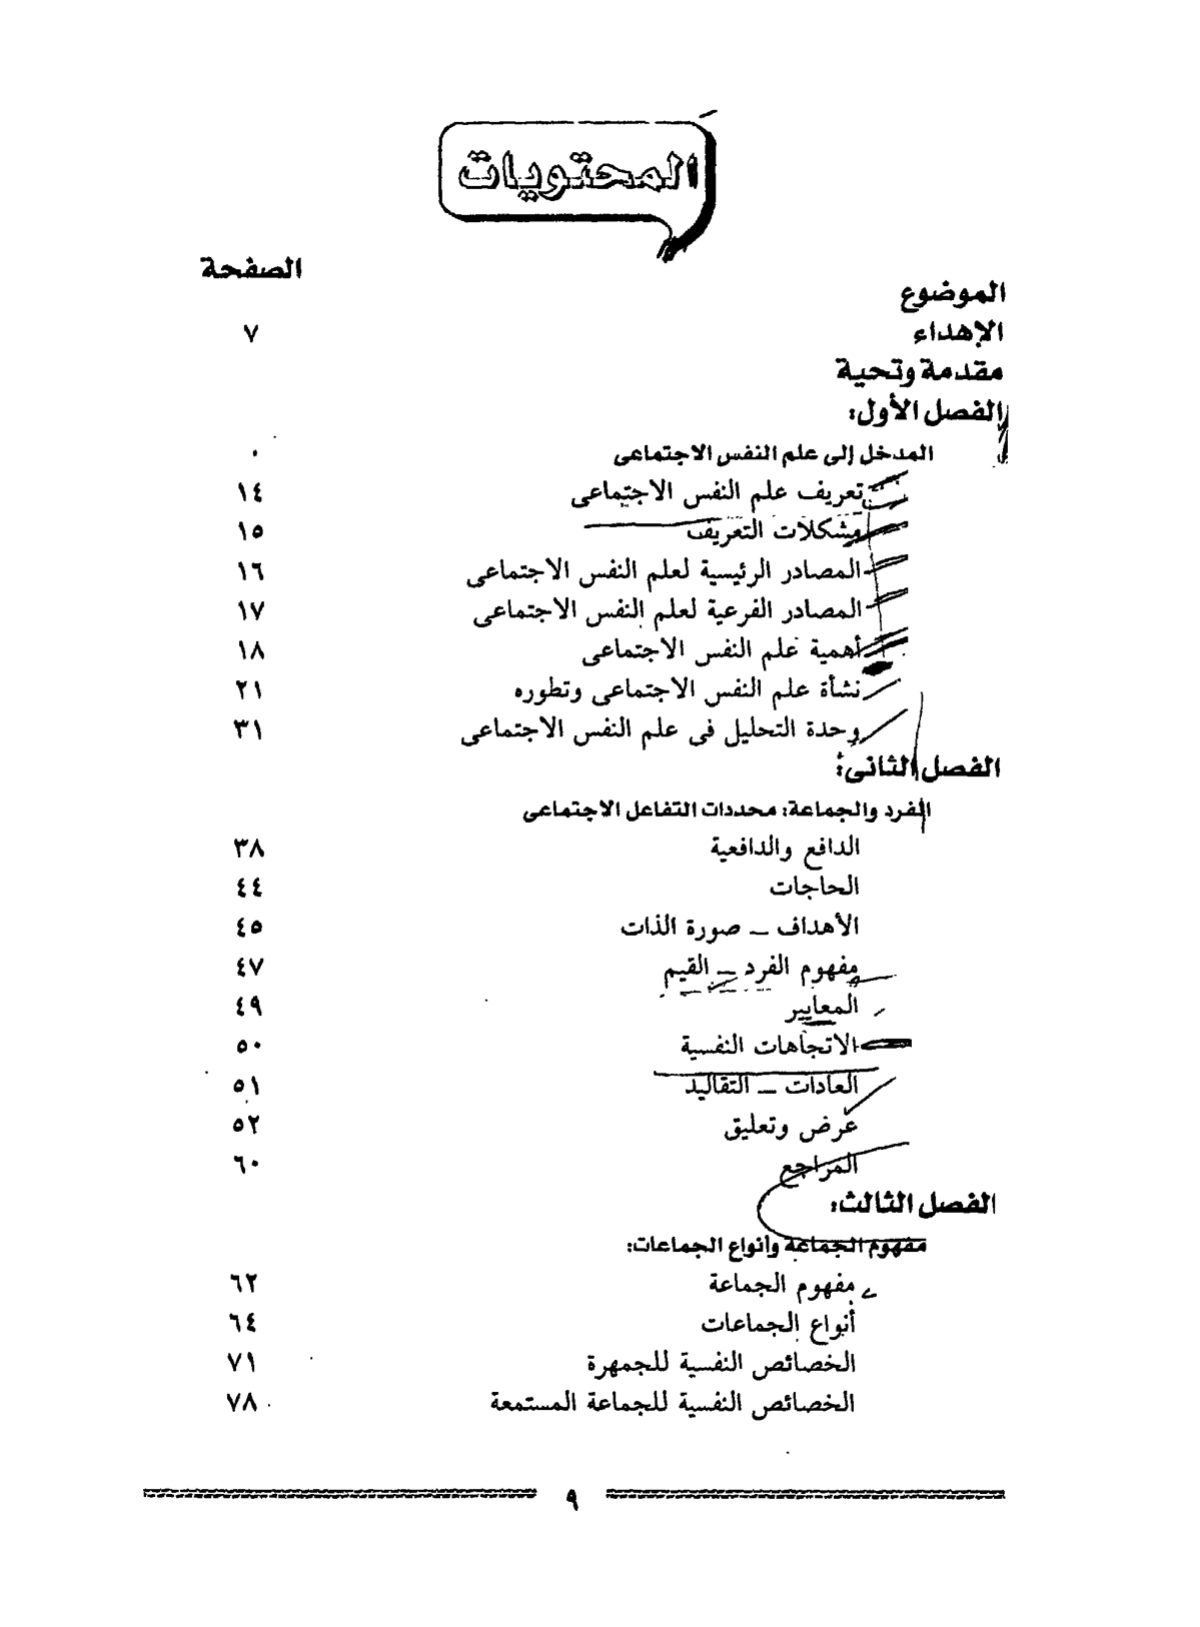 المحتويات
الصفحة
الموضوع
الإهداء ٧
مقدمة وتحية
الفصل الأول:
المدخل إلى علم النفس الاجتماعى
تعريف علم النفس الاجتماعى ١٤
مشكلات التعريف ١٥
المصادر الرئيسية لعلم النفس الاجتماعى ١٦
المصادر الفرعية لعلم النفس الاجتماعى ١٧
أهمية علم النفس الاجتماعى ١٨
نشأة علم النفس الاجتماعى وتطوره ٢١
وحدة التحليل فى علم النفس الاجتماعى ٣١
الفصل الثانى:
الفرد والجماعة: محددات التفاعل الاجتماعى
الدافع والدافعية ٣٨
الحاجات ٤٤
الأهداف ــ صورة الذات ٤٥
مفهوم الفرد ــ القيم ٤٧
المعايير ٤٩
الاتجاهات النفسية ٥٠
العادات ــ التقاليد ٥١
عرض وتعليق ٥٢
المراجع ٦٠
الفصل الثالث:
مفهوم الجماعة وأنواع الجماعات:
مفهوم الجماعة ٦٢
أنواع الجماعات ٦٤
الخصائص النفسية للجمهرة ٧١
الخصائص النفسية للجماعة المستمعة ٧٨
٩